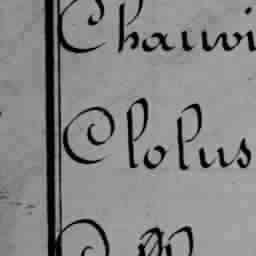 Chauvi
Clolus